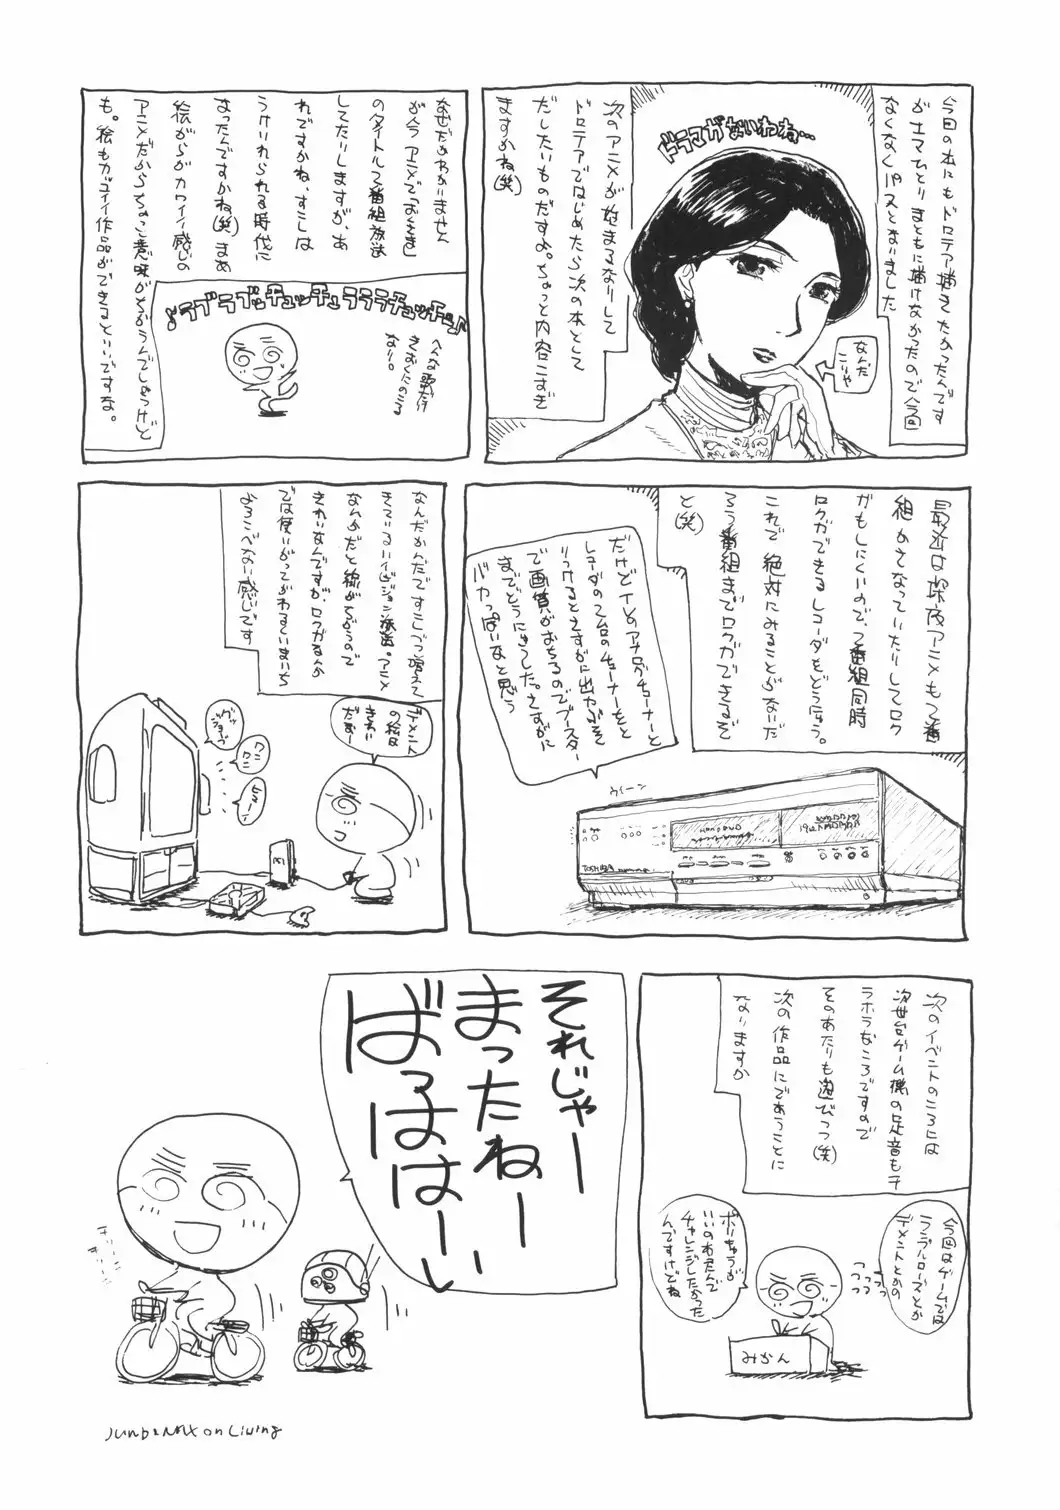 今回の本にもドロテア描きたかったんです
がナマひとりまともに描けなかったので今回
なくなくパスとなりました
ドラマがないわね…
次のアニメが始まるなりして
ドロテアではじめたら次の本として
だしたいものだすよ。ちょっと内容こすぎ
ますかね(笑)
なんだ
こりゃ
なぜだかわかりません
が今アニメで「おくさま」
のタイトルて番組放送
してたりしますが、あ
れですかね、すこしは
うけいれられる時代に
なったんですかね(笑)まあ
絵がらがカワイイ感じの
アニメだからちょっこ意味がちがうんでしょうけど
も。絵もカッコイイ作品ができるといいですな。
♪ラブラブッチュッチュラララチュッチュ♪
へんな歌だけ
きおくにのこる
なり。
最近は深夜アニメも2番
組かさなっていたりしてロク
ガもしにくいので、2番組同時
ロクガできるレコーダをどうにゅう。
これで絶対にみることがないだ
ろう番組までロクガできるぞ
と(笑)
だけどTVのアナログチューナーと
レコーダの2台のチューナーをと
りつけるとさすがに出力ぶそく
で画質がおちるのでブースター
までどうにゅうした。さすがに
バカっぽいなと思う
ウィーン
TOSHIBA
なんだかんだですこしづつ増えて
きているハイビジョン放送。アニメ
なんかだと線がちがうので
きれいなんですが、ロクガなんか
では使いがってがわるくいまいち
よろこべない感じです
デメント
の絵は
きれい
だなー
グッ
ジョブ
ワン
ワン
ヒューン
次のイベントのころには
次世代ゲーム機の足音もチ
ラホラなころですので
そのあたりも遊びつつ(笑)
次の作品にであうことに
なりますか
今回はゲームでは
ランブルローズとか
デメントとかの
つつつ
つつつ
ボリちゅうが
いいのおおんで
チャレンジしたかった
んですけどね
みかん
それじゃー
まったねーい
ばっはは―い
Junb&Max on Living